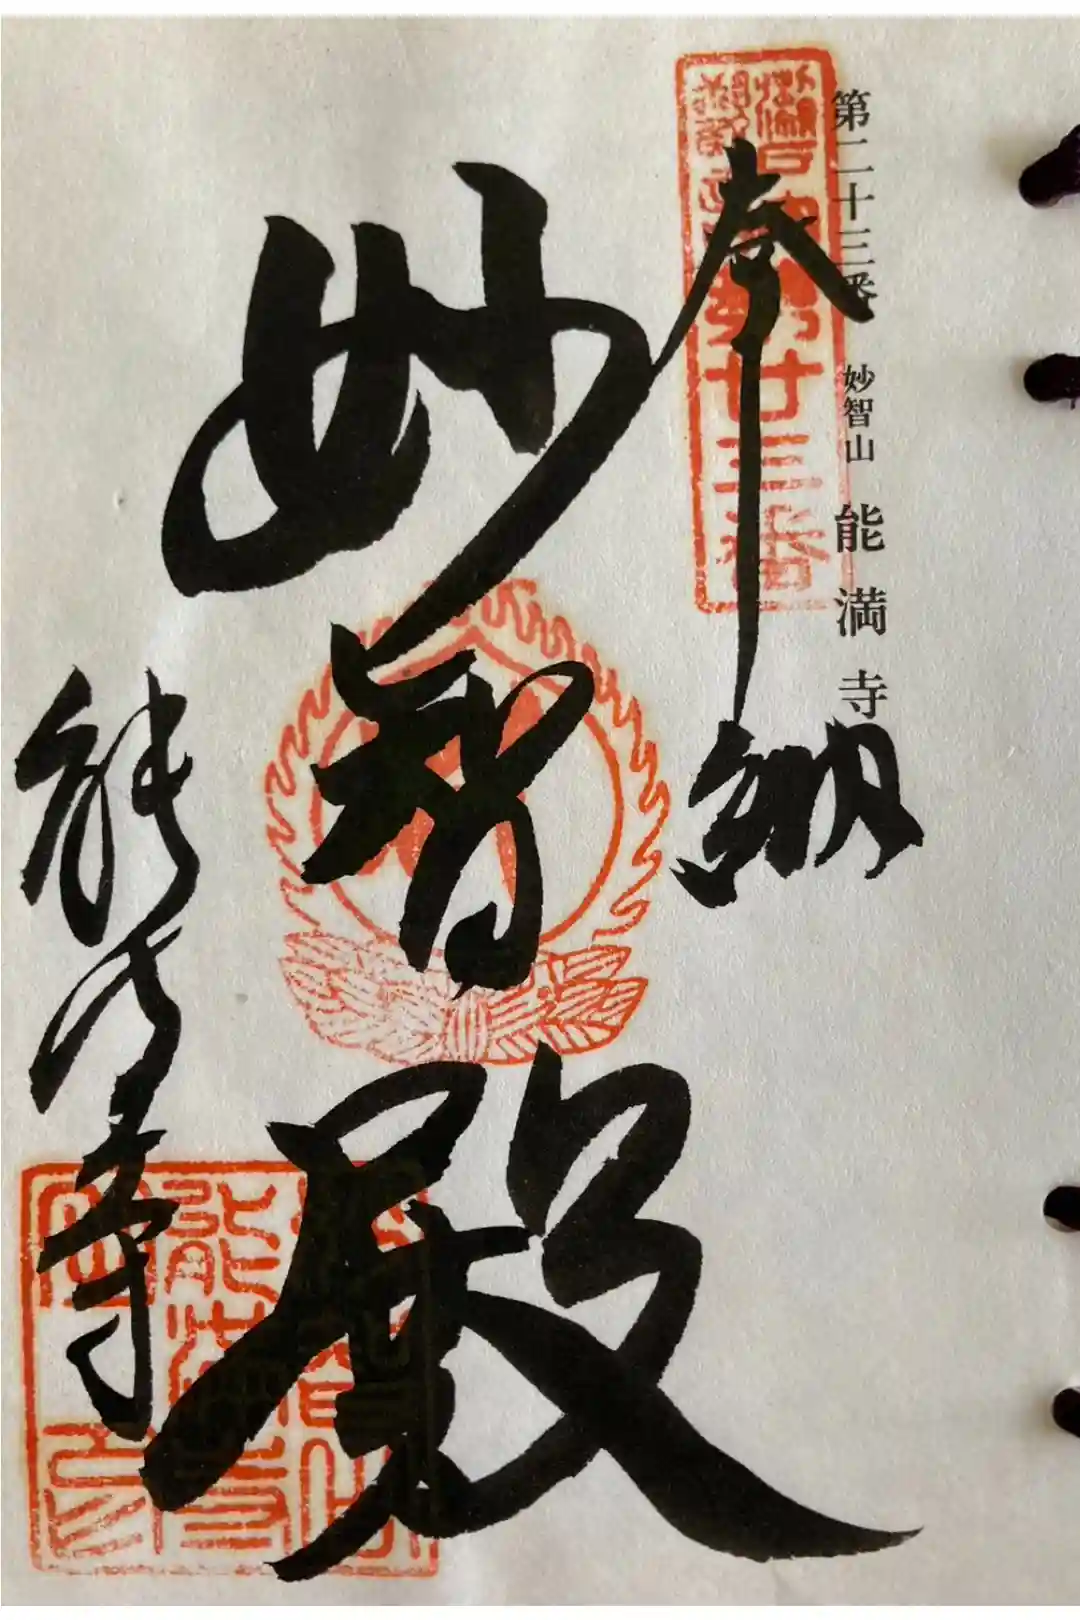 第二十三番 妙智山 能満寺
奉納
妙智殿
能満寺
第廿三番